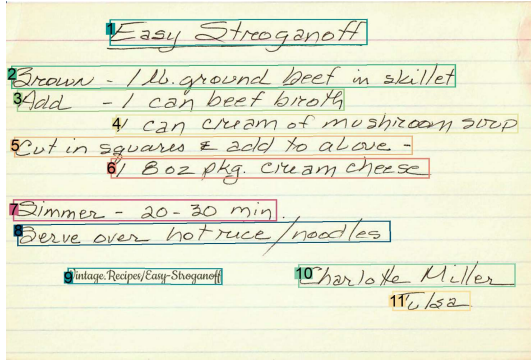 Easy Stroganoff
Brown - 1 lb. ground beef in skillet
Add - 1 can beef broth
1 can cream of mushroom soup
Cut in squares & add to above -
1 8 oz pkg. cream cheese
Simmer - 20-30 min.
Serve over hot rice/noodles
Vintage.Recipes/Easy-Stroganoff
Charlotte Miller
Tulsa